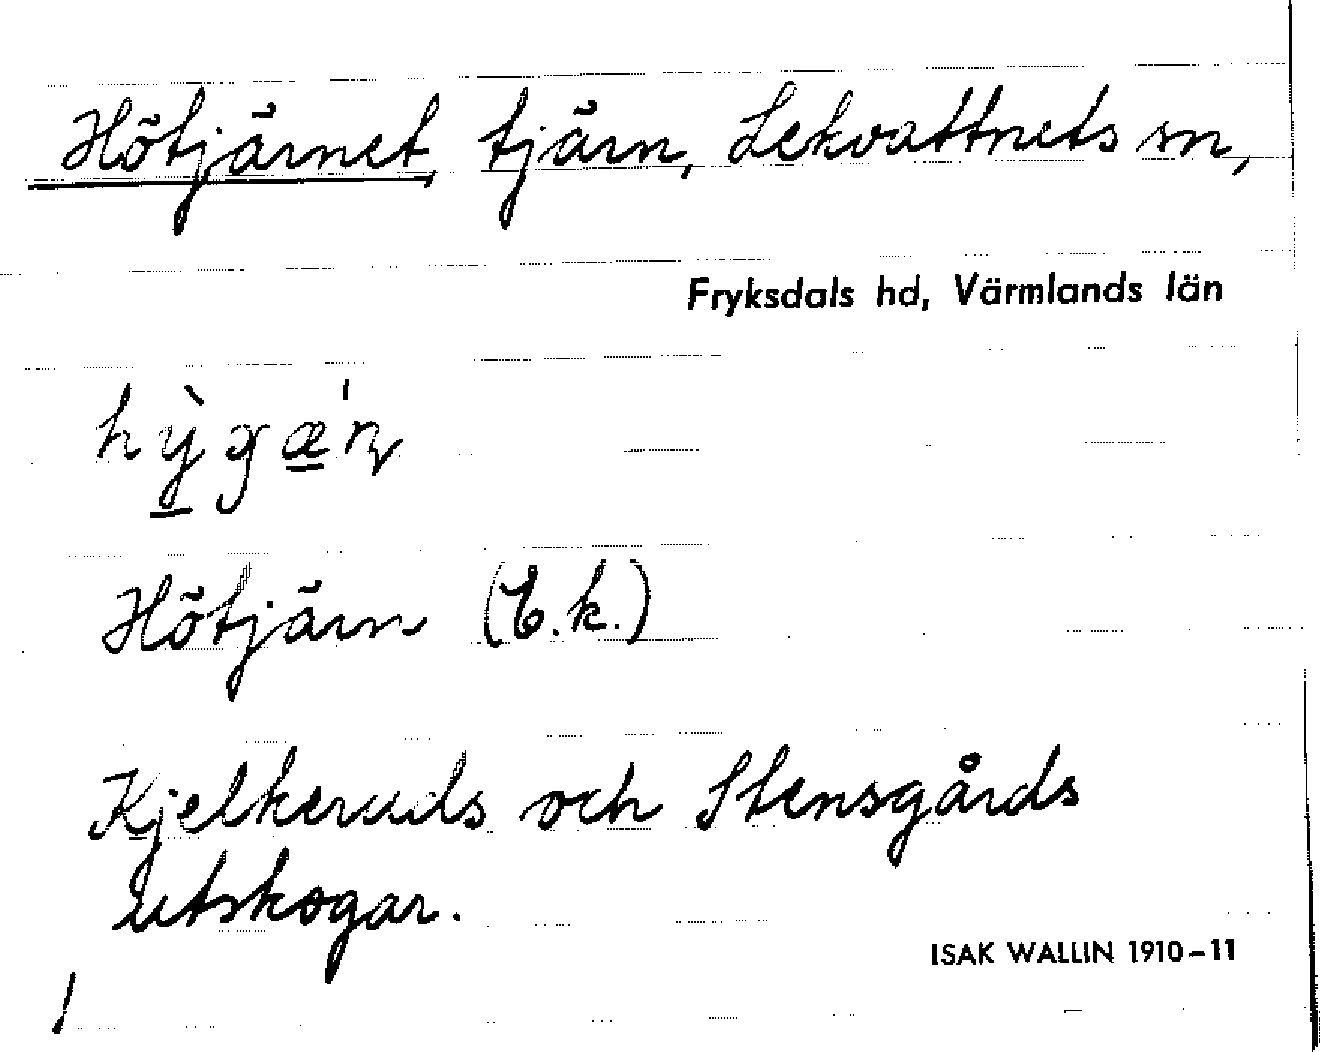 Hötjärnet, tjärn, Lekvattnets sn,
Fryksdals hd, Värmlands län
Hötjärn (E.k.)
Kjelkeruds och Stensgårds
utskogar.
ISAK WALLIN 1910-11